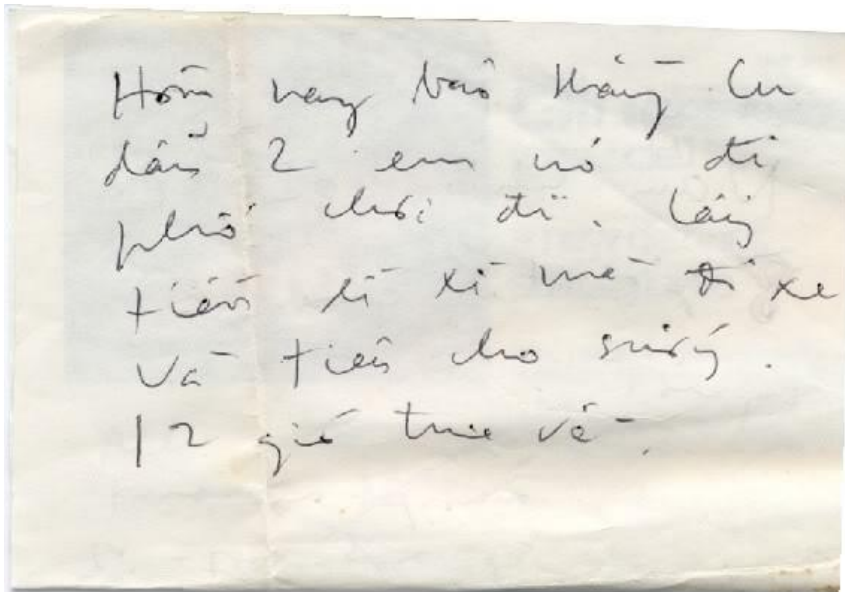 Hôm nay bảo thằng Cu
dẫn 2 em nó đi
phố chơi đi. Lấy
tiền lì xì mà đi xe
và tiền cho
12 giờ trưa về.